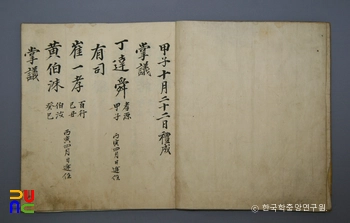 甲子十月二十二日禮成
掌議
丁達舜 孝源 甲子 丙寅四月日遞任
有司
崔一孝 百行 己丑
黄伯洙 伯汝 癸巳 丙寅四月日遞任
掌議
한국학중앙연구원